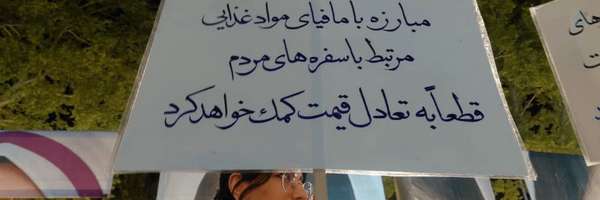 مبارزه با مافیای مواد غذایی
مرتبط با سفره های مردم
قطعاً به تعادل قیمت کمک خواهد کرد
های